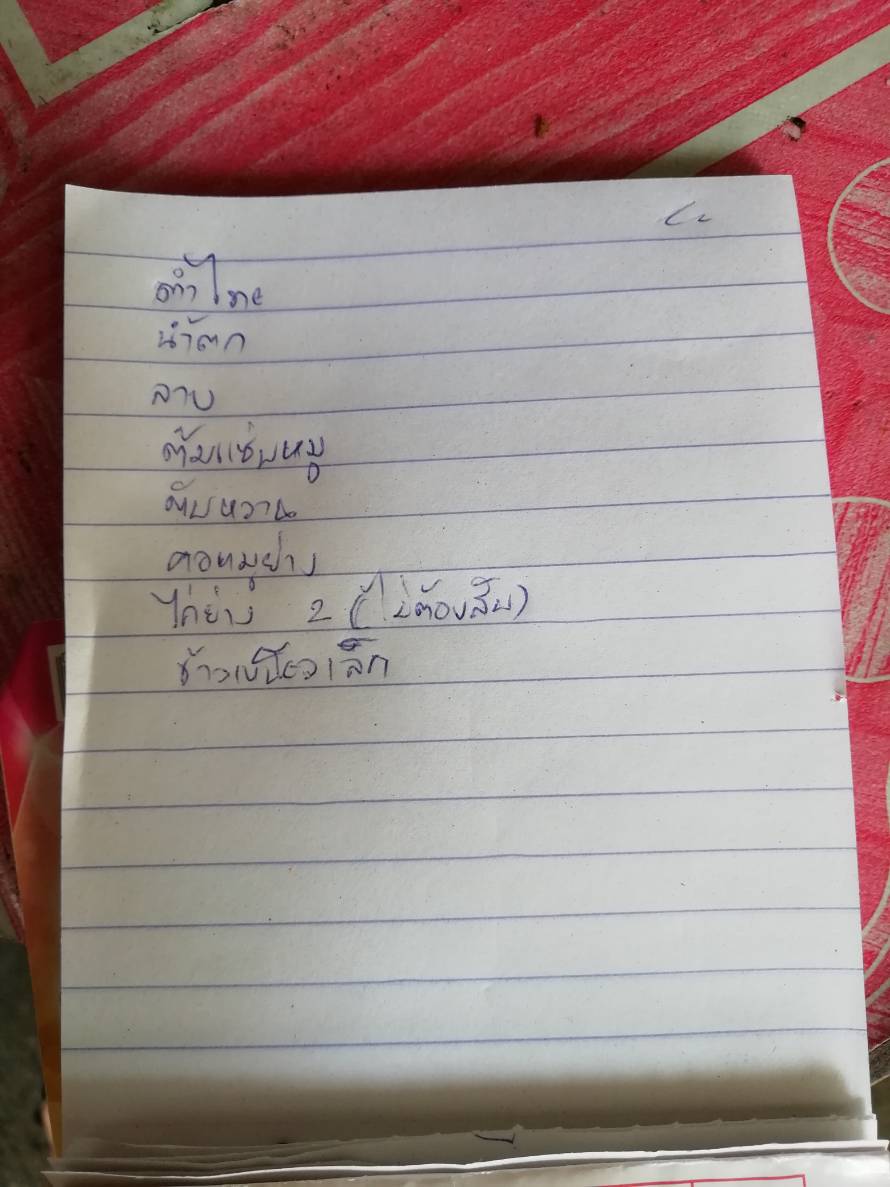 ตำไทย
น้ำตก
ลาบ
ต้มแซ่บหมู
ตับหวาน
คอหมูย่าง
ไก่ย่าง 2 (ไม่ต้องสับ)
ข้าวเหนียวเล็ก